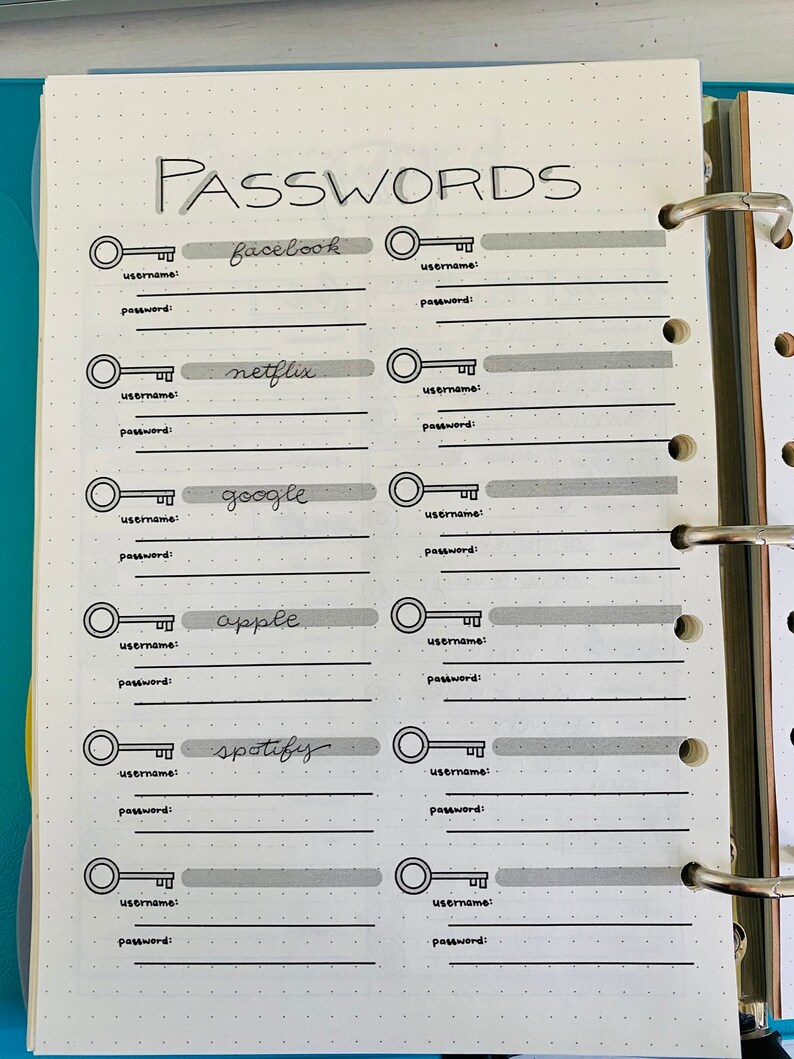 PASSWORDS
facebook
username:
password:
netflix
username:
password:
google
username:
password:
apple
username:
password:
spotify
username:
password:
username:
password:
username:
password:
username:
password:
username:
password:
username:
password:
username:
password:
username:
password: